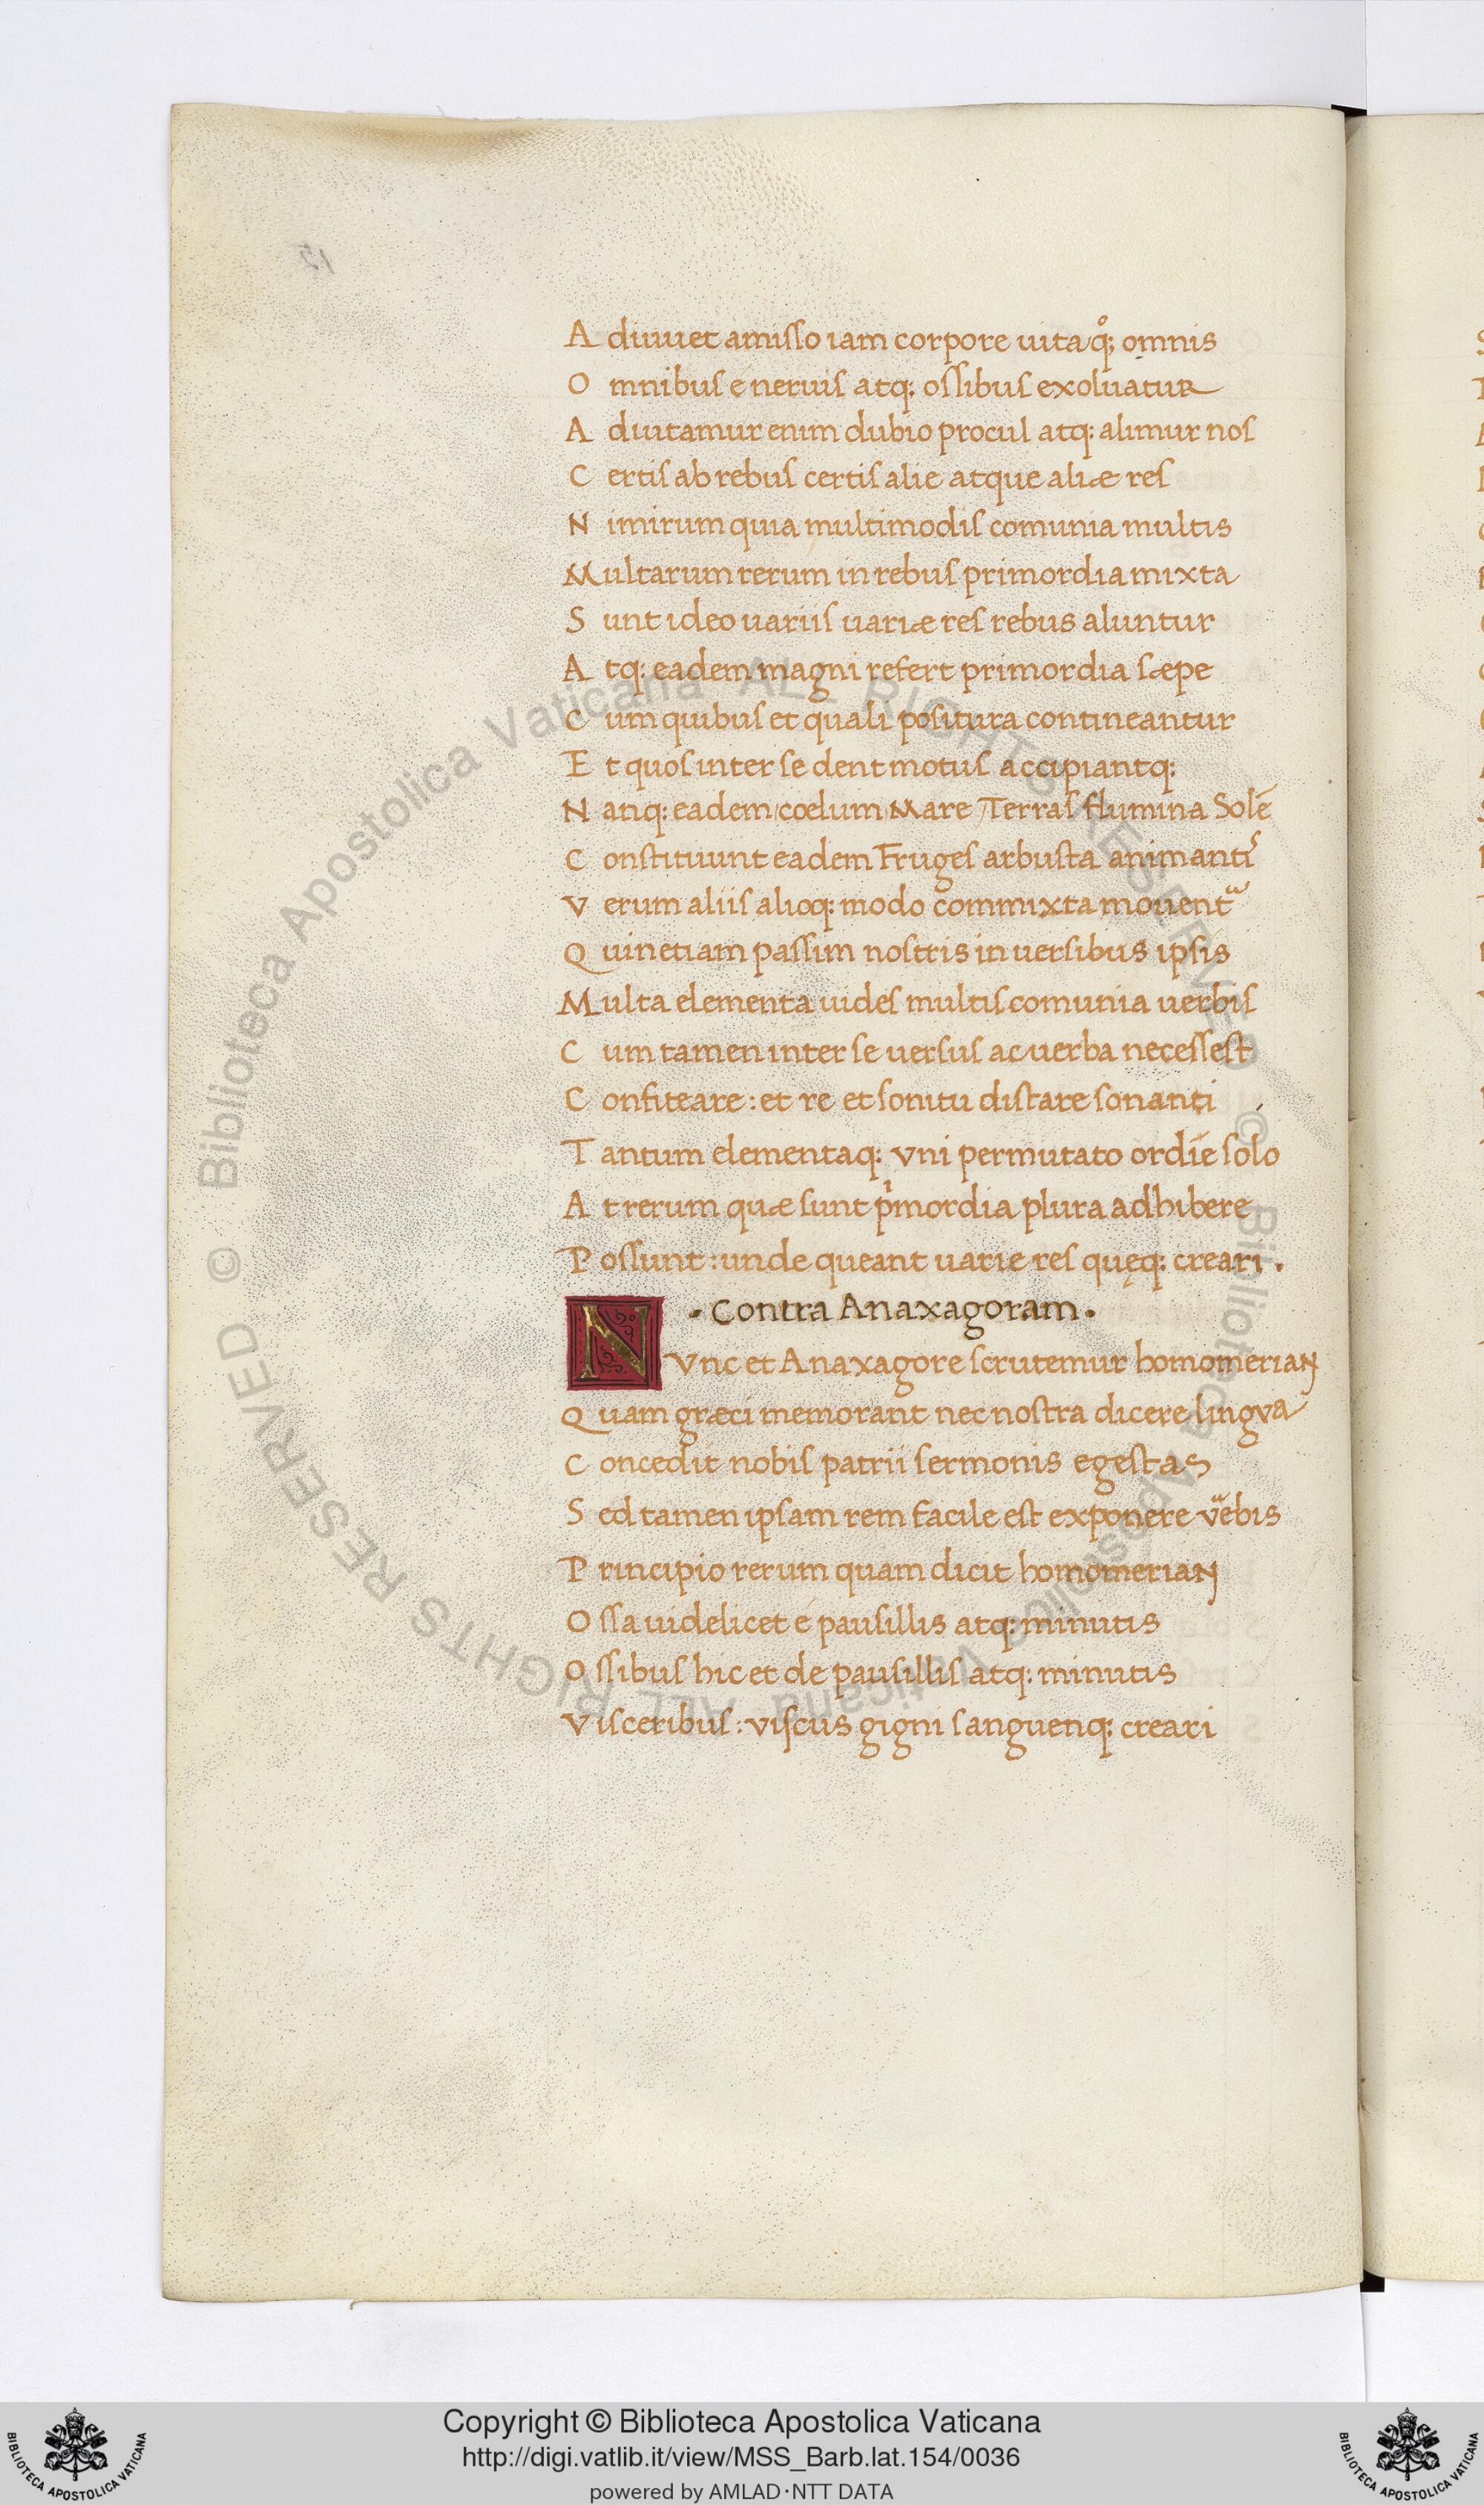 A diuuet amisso iam corpore uita qͦ; omnis
O mnibus é neruis atq: ossibus exoluatur
A duitamur enim dubio procul atq: alimur nos
C ertis ab rebus certis alie atque aliæ res
N imirum quia multimodis comunia multis
Multarum rerum in rebus primordia mixta
S unt ideo uariis uariæ res rebus aluntur
A tq: eadem magni refert primordia sæpe
C um quibus et quali positura contineantur
E t quos inter se dent motus accipiantq:
N anq: eadem/cœlum/Mare/Terras flumina Solē
C onstituunt eadem Fruges arbusta animantis
V erum aliis alioq: modo commixta mouentᷓ
Q uin etiam passim nostris in uersibus ipsis
Multa elementa uides multis comunia uerbis
C um tamen inter se uersus ac uerba necessest
C onfiteare: et re et sonitu distare sonanti
T antum elementaq: vni permutato ordīe solo
A t rerum quæ sunt pͥmordia plura adhibere
P ossunt: unde queant uarie res quęq: creari.
• Contra Anaxagoram •
N Vnc et Anaxagore scrutemur homomerian
Q uam græci memorant nec nostra dicere lingva
C oncedit nobis patrii sermonis egestas
S ed tamen ipsam rem facile est exponere vᷓebis
P rincipio rerum quam dicit homomerian
O ssa uidelicet é pausillis atq: minutis
O ssibus hic et de pausillis atq: minutis
V isceribus: viscus gigni sanguenq: creari
© Biblioteca Apostolica Vaticana ALL RIGHTS RESERVED © Biblioteca Apostolica Vaticana ALL RIGHTS RESERVED
Copyright © Biblioteca Apostolica Vaticana
http://digi.vatlib.it/view/MSS_Barb.lat.154/0036
powered by AMLAD·NTT DATA
BIBLIOTECA APOSTOLICA VATICANA
BIBLIOTECA APOSTOLICA VATICANA